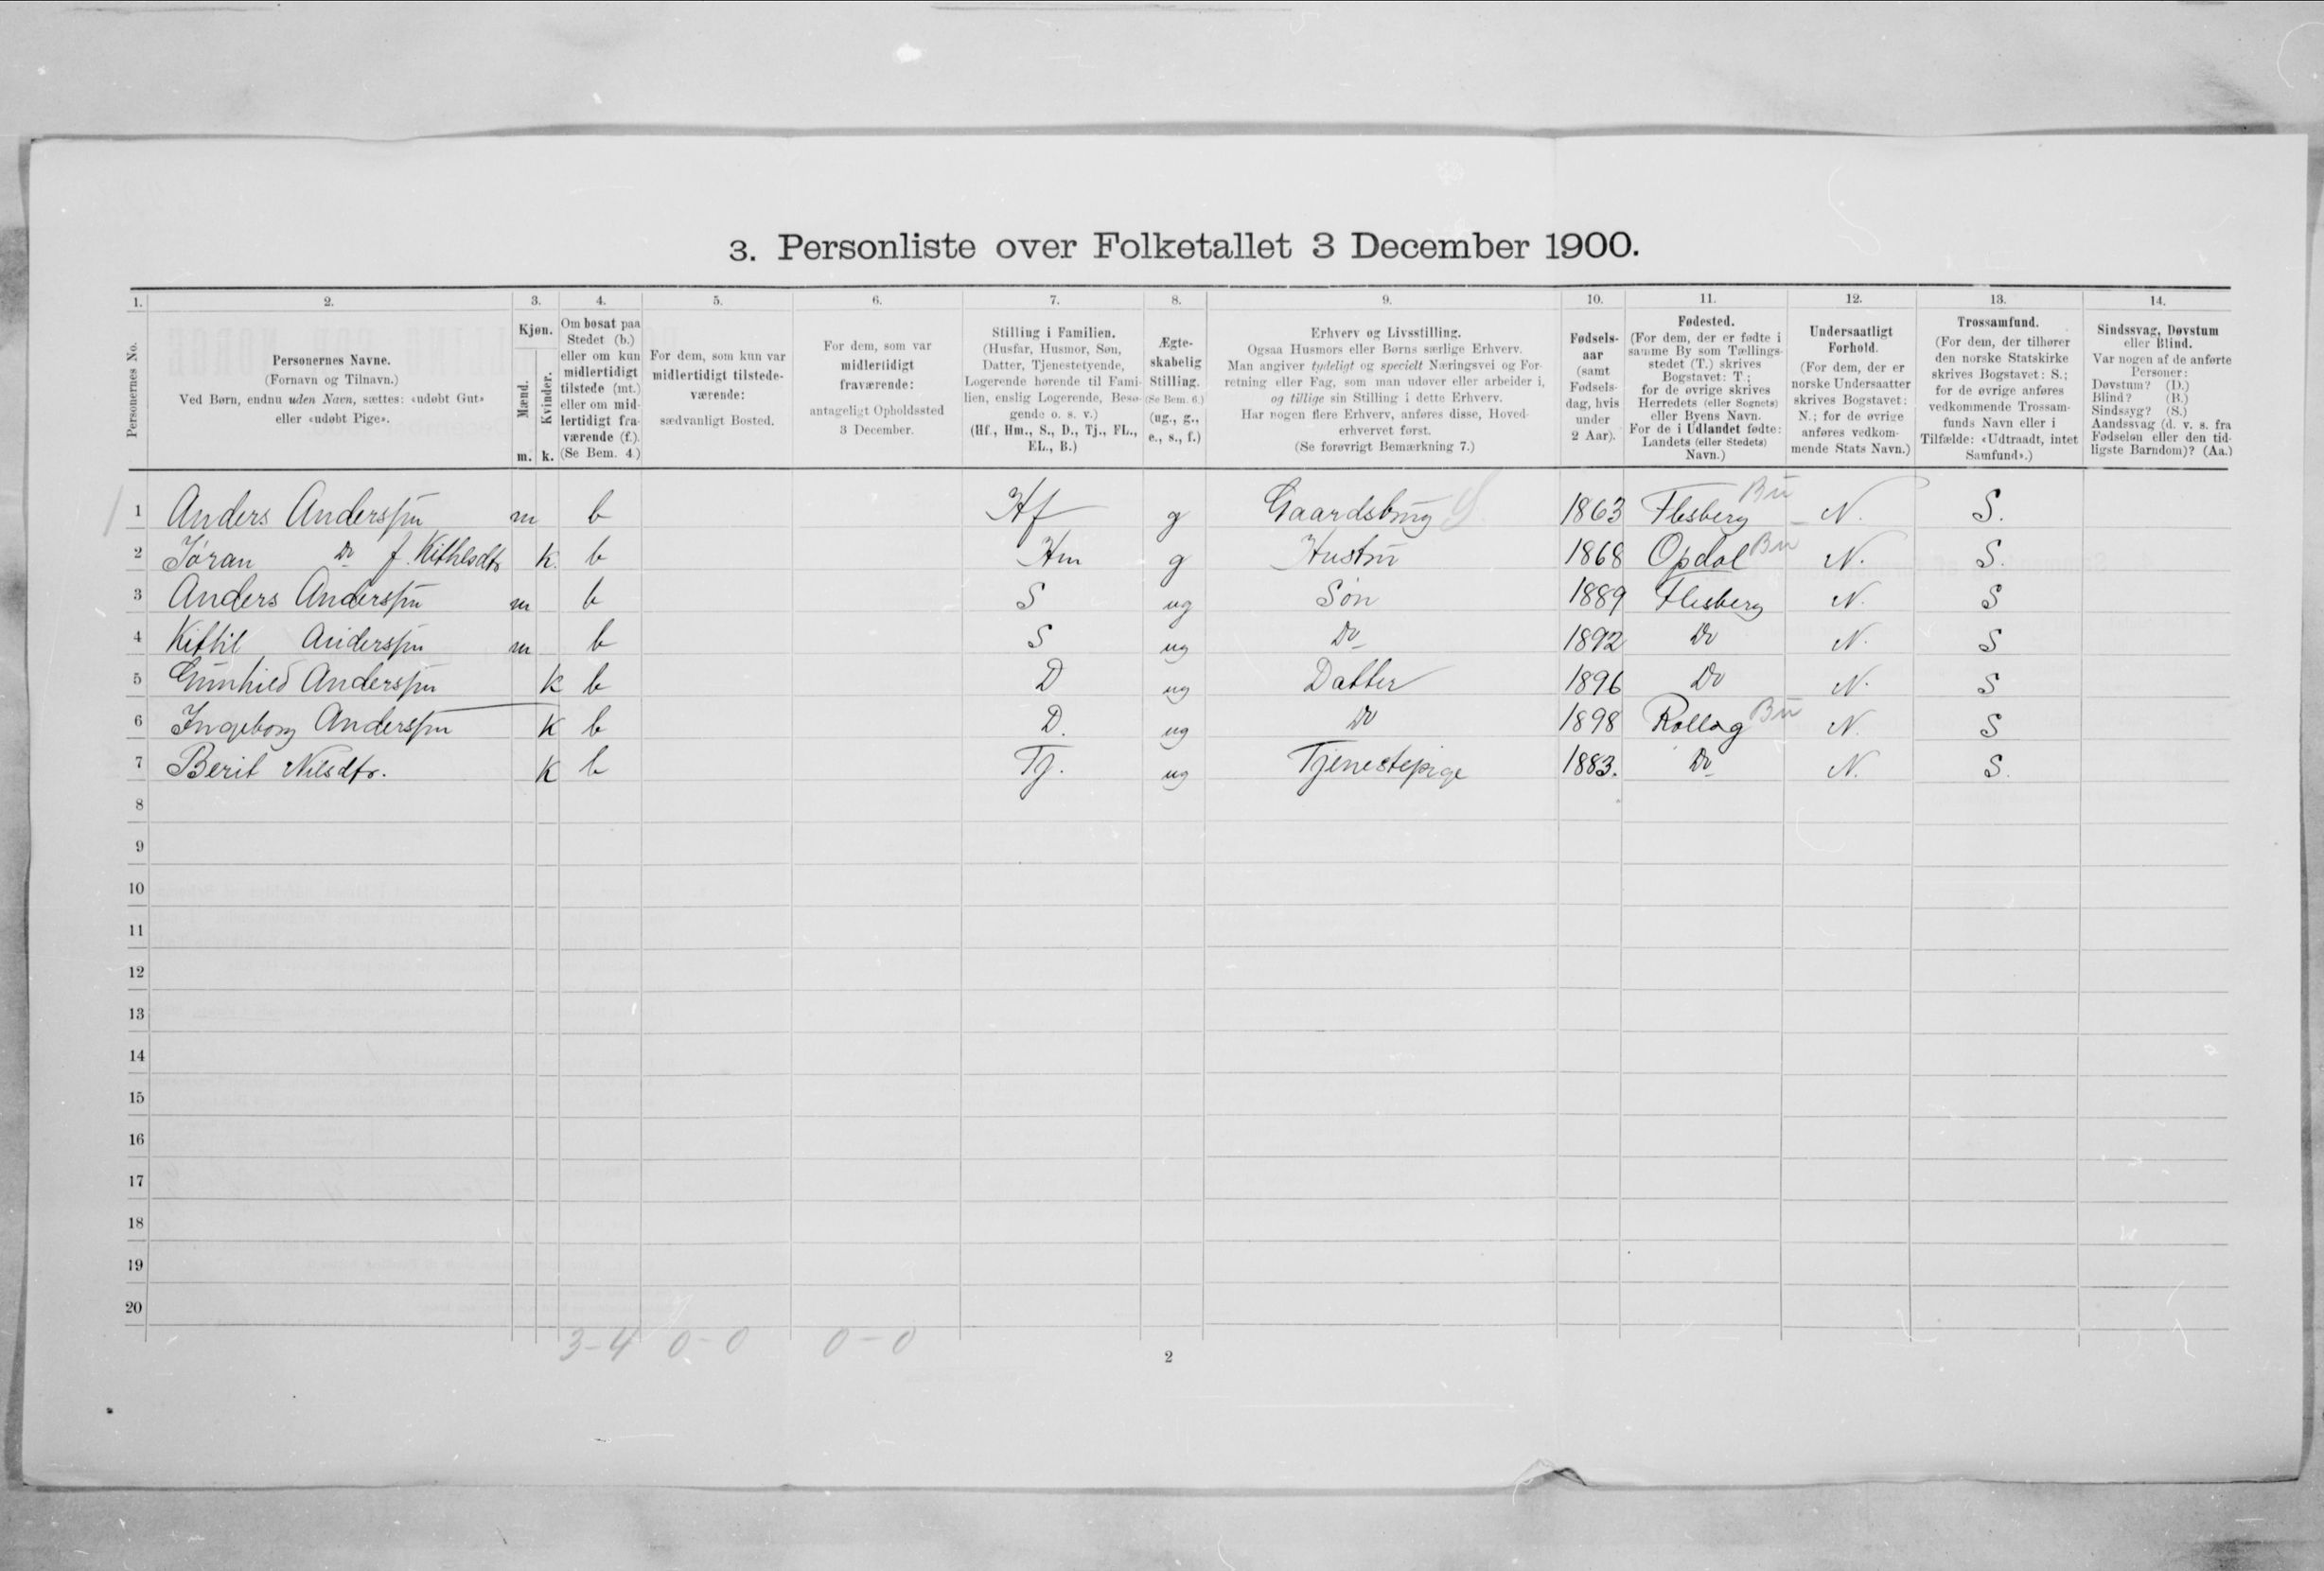 3. Personliste over Folketallet 3 December 1900.
1. 2. 3. 4. 5. 6. 7. 8. 9. 10. 11. 12. 13. 14.
Personernes No.
Personernes Navne.
(Fornavn og Tilnavn.)
Ved Børn, endnu uden Navn, sættes: «udøbt Gut»
eller «udøbt Pige».
Kjøn.
Mænd.
Kvinder.
m. k.
Om bosat paa
Stedet (b.)
eller om kun
midlertidigt
tilstede (mt.)
eller om mid-
lertidigt fra-
værende (f.).
(Se Bem. 4.)
For dem, som kun var
midlertidigt tilstede-
værende:
sædvanligt Bosted.
For dem, som var
midlertidigt
fraværende:
antageligt Opholdssted
3 December.
Stilling i Familien.
(Husfar, Husmor, Søn,
Datter, Tjenestetyende,
Logerende hørende til Fami-
lien, enslig Logerende, Besø-
gende o. s. v.)
(Hf., Hm., S., D., Tj., FL.,
EL., B.)
Ægte-
skabelig
Stilling.
(Se Bem. 6.)
(ug., g.,
e., s., f.)
Erhverv og Livsstilling.
Ogsaa Husmors eller Børns særlige Erhverv.
Man angiver tydeligt og specielt Næringsvei og For-
retning eller Fag, som man udøver eller arbeider i,
og tillige sin Stilling i dette Erhverv.
Har nogen flere Erhverv, anføres disse, Hoved-
erhvervet først.
(Se forøvrigt Bemærkning 7.)
Fødsels-
aar
(samt
Fødsels-
dag, hvis
under
2 Aar).
Fødested.
(For dem, der er fødte i
samme By som Tællings-
stedet (T.) skrives
Bogstavet: T.;
for de øvrige skrives
Herredets (eller Sognets)
eller Byens Navn.
For de i Udlandet fødte:
Landets (eller Stedets)
Navn.)
Undersaatligt
Forhold.
(For dem, der er
norske Undersaatter
skrives Bogstavet:
N.; for de øvrige
anføres vedkom-
mende Stats Navn.)
Trossamfund.
(For dem, der tilhører
den norske Statskirke
skrives Bogstavet: S.;
for de øvrige anføres
vedkommende Trossam-
funds Navn eller i
Tilfælde: «Udtraadt, intet
Samfund».)
Sindssvag, Døvstum
eller Blind.
Var nogen af de anførte
Personer:
Døvstum? (D.)
Blind? (B.)
Sindssyg? (S.)
Aandssvag (d. v. s. fra
Fødselen eller den tid-
ligste Barndom)? (Aa.)
1 Anders Anderssen m b Hf g Gaardsbrug S. 1863 Flesberg Bu N. S.
2 Jöran Do f. Kithlsdtr k. b Hm g Hustru 1868 Opdal Bu N. S.
3 Anders Anderssen m b S ug Søn 1889 Flesberg N. S
4 Kittil Anderssen m b S ug Do 1892 Do N. S
5 Gunhild Anderssen k b D ug Datter 1896 Do N. S
6 Ingeborg Anderssen k b D. ug Do 1898 Rollag Bu N. S
7 Berit Nilsdtr. k b Tj. ug Tjenestepige 1883. Do N. S.
8
9
10
11
12
13
14
15
16
17
18
19
20
3-4 0-0 0-0
2